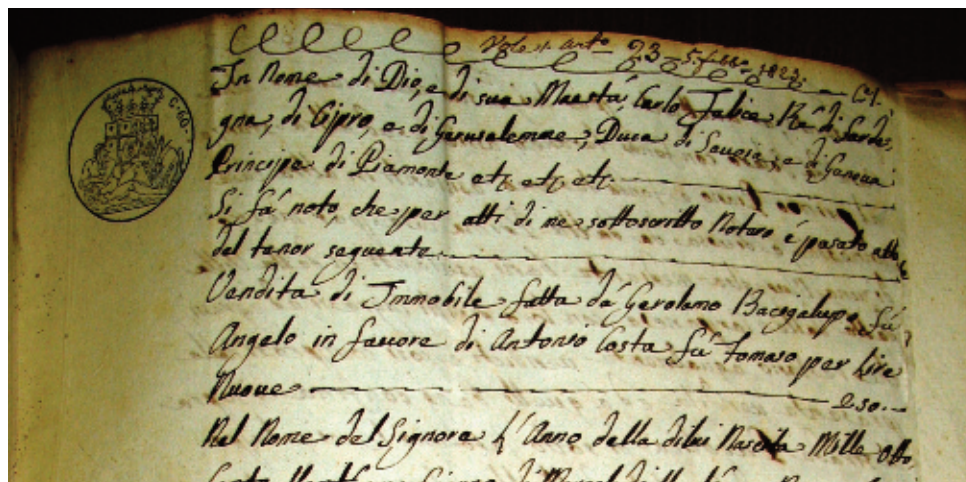 23 1823
C. 60.
In Nome di Dio, e di sua Maestà Carlo Felice Rè di Sarde,
gna, di Cipro, e di Gerusalemme, Duca di Savoia, e di Genova
Principe di Piamonte etc etc etc
Si fà noto, che per atti di me sottoscritto Notaro è pasato atto
del tenor seguente
Vendita di Immobile fatta dà Gerolamo Bacigalupo fù
Angelo in favore di Antonio Costa fù Tomaso per Lire
Nuove 250..
Nel Nome del Signore L'Anno della dilui Nascita Mille otto